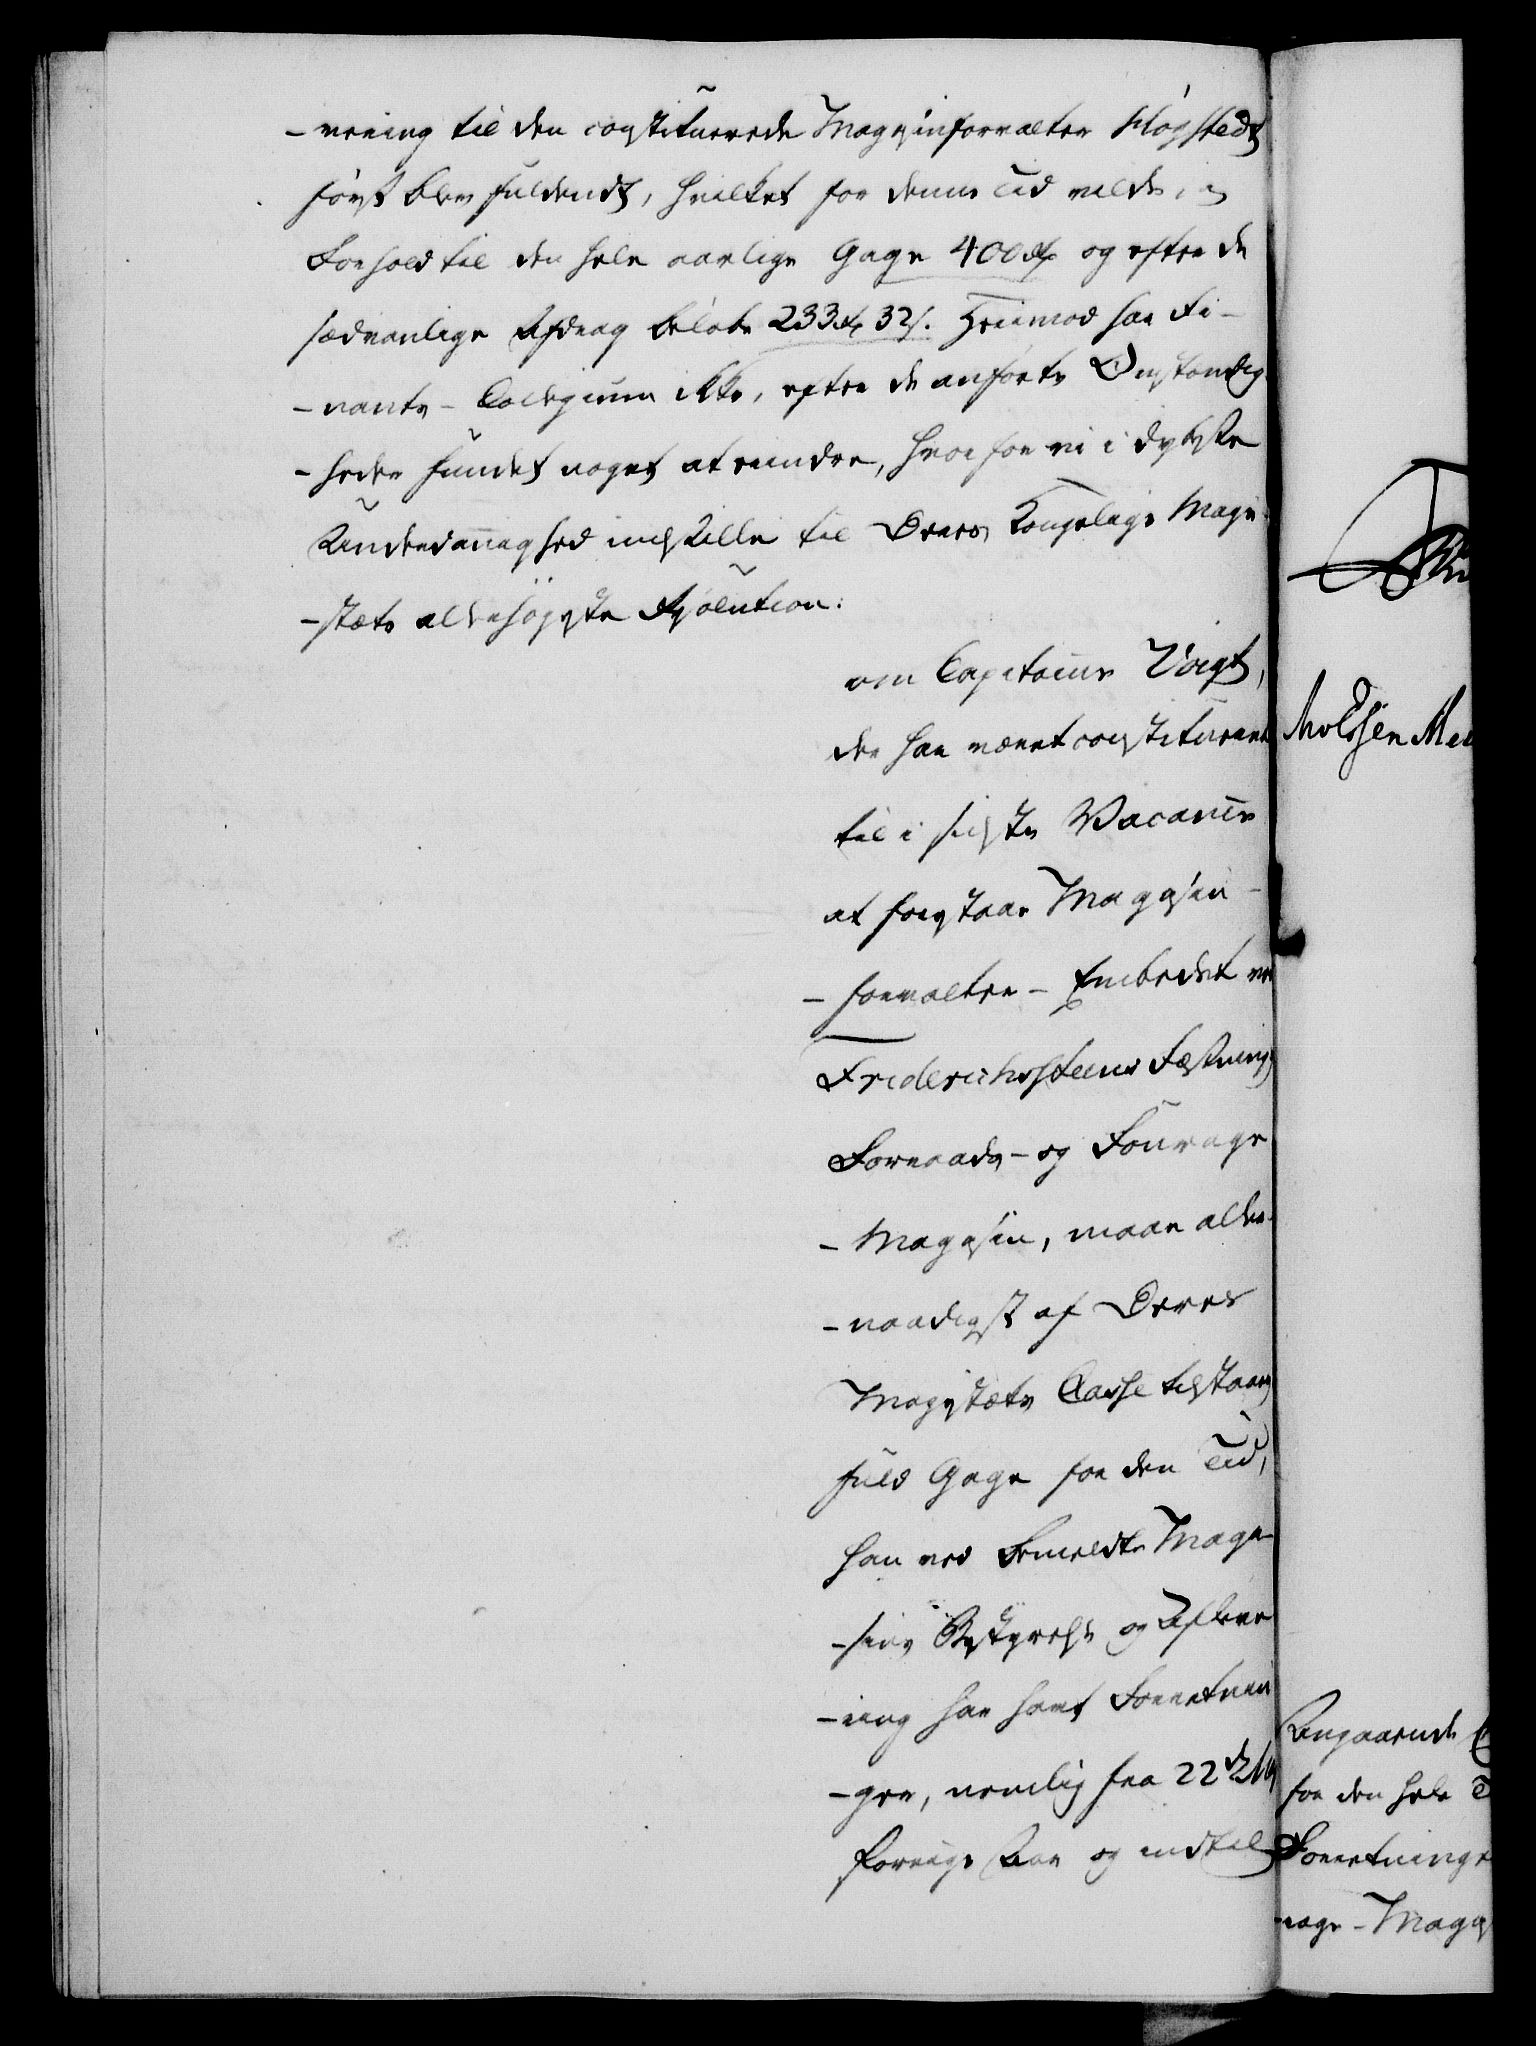 -vering til den constituerede Magasinforvalter Høgstedt
først blev fuldendt, hvilket for denne Tid vilde, i
Forhold til den hele aarlige Gage 400 rd og efter de
sædvanlige Afdrag beløbe 233 rd 32 s. Herimod har Fi-
-nants-Collegium ikke, efter de anførte Omstændig-
-heder fundet noget at erindre, hvorfor vi i dybeste
Underdanighed indstille til Deres Kongelige Maje-
-stæts allerhøyeste Resolution:
om Capitaine Voigt,
der har været constitueret
til i sidste Vacance
at forestaae Magasin-
-forvalter-Embedet ved
Friderichssteens Fæstnings
Forraads- og Fourage
-Magasin, maae aller-
-naadigst af Deres
Majestæts Casse tilstaaes
fuld Gage for den Tid,
han ved bemeldte Maga-
-sins Bestyrelse og Afleve-
-ring har havt Forretnin-
-ger, nemlig fra 22de
forrige Aar og indtil
Angaaende
for den hele
Forretninge
-rage-Magas